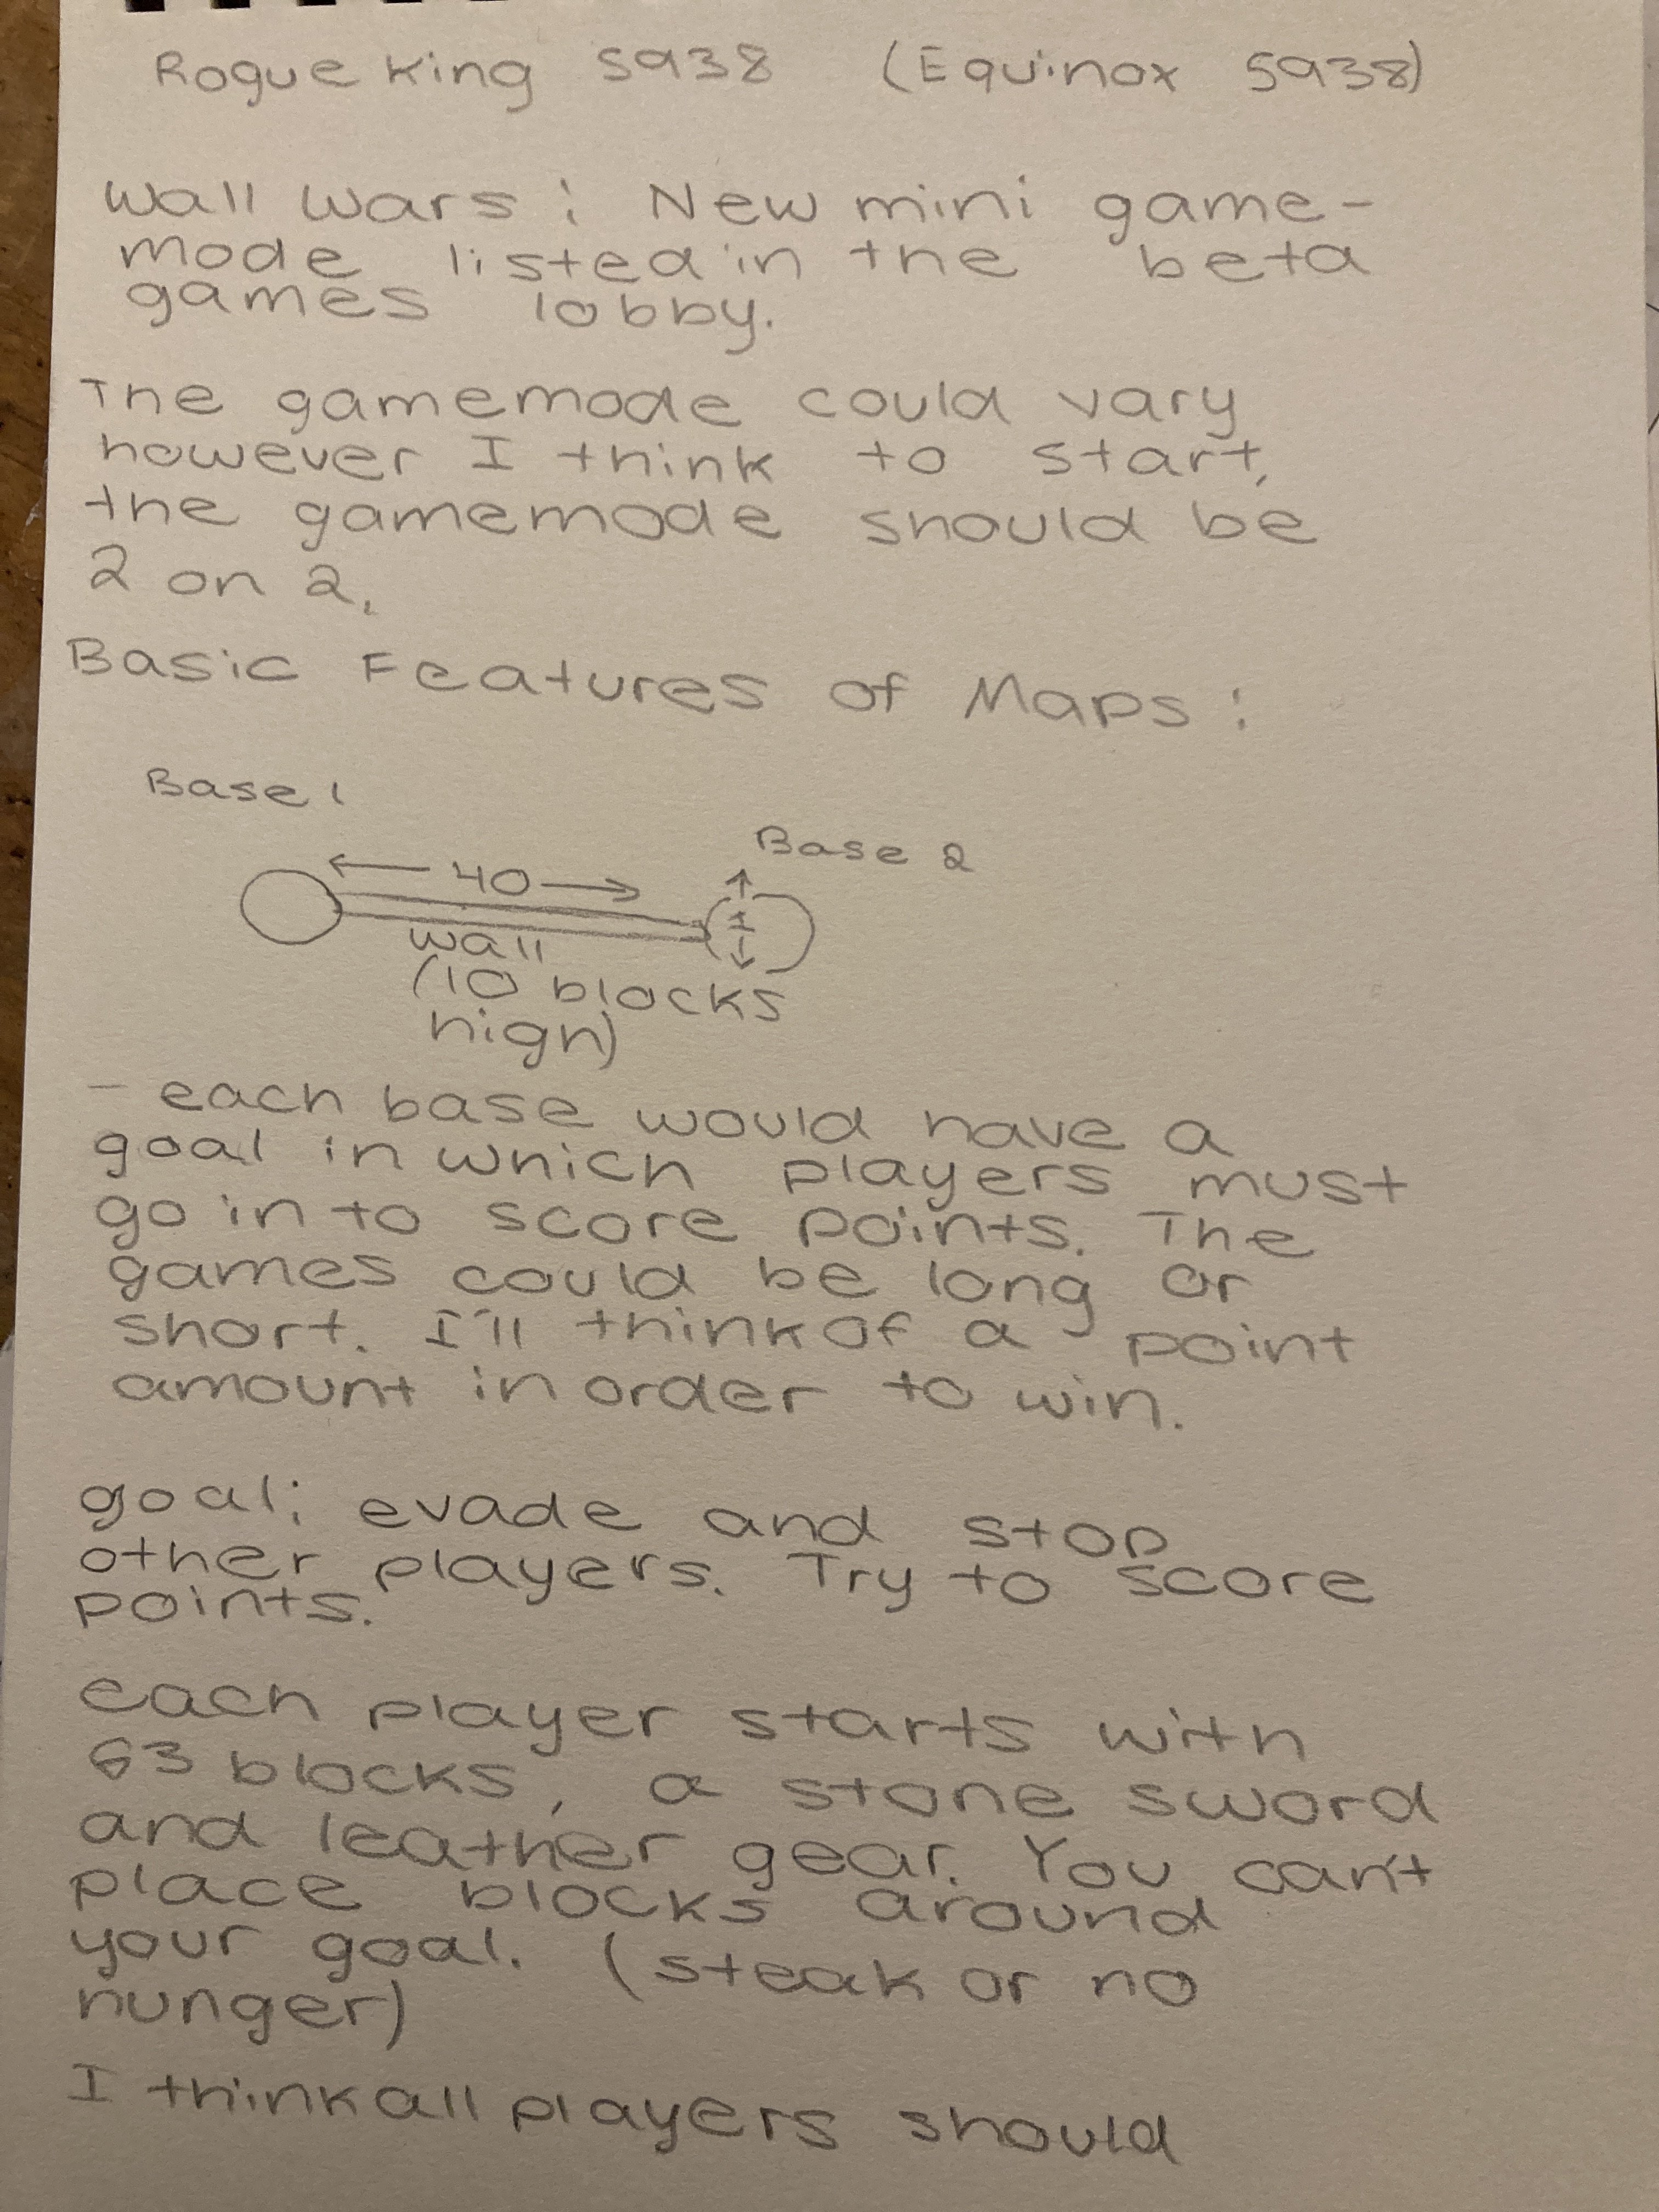 Rogue King 5938 (Equinox 5938)
Wall Wars: New mini game-
mode listed in the beta
games lobby.
The gamemode could vary
however I think to start,
the gamemode should be
2 on 2.
Basic Features of Maps:
Base 1
Base 2
← 40 →
↑
1
↓
wall
(10 blocks
high)
- each base would have a
goal in which players must
go in to score points. The
games could be long or
short. I'll think of a point
amount in order to win.
goal: evade and stop
other players. Try to score
points.
each player starts with
63 blocks, a stone sword
and leather gear. You can't
place blocks around
your goal. (steak or no
hunger)
I think all players should